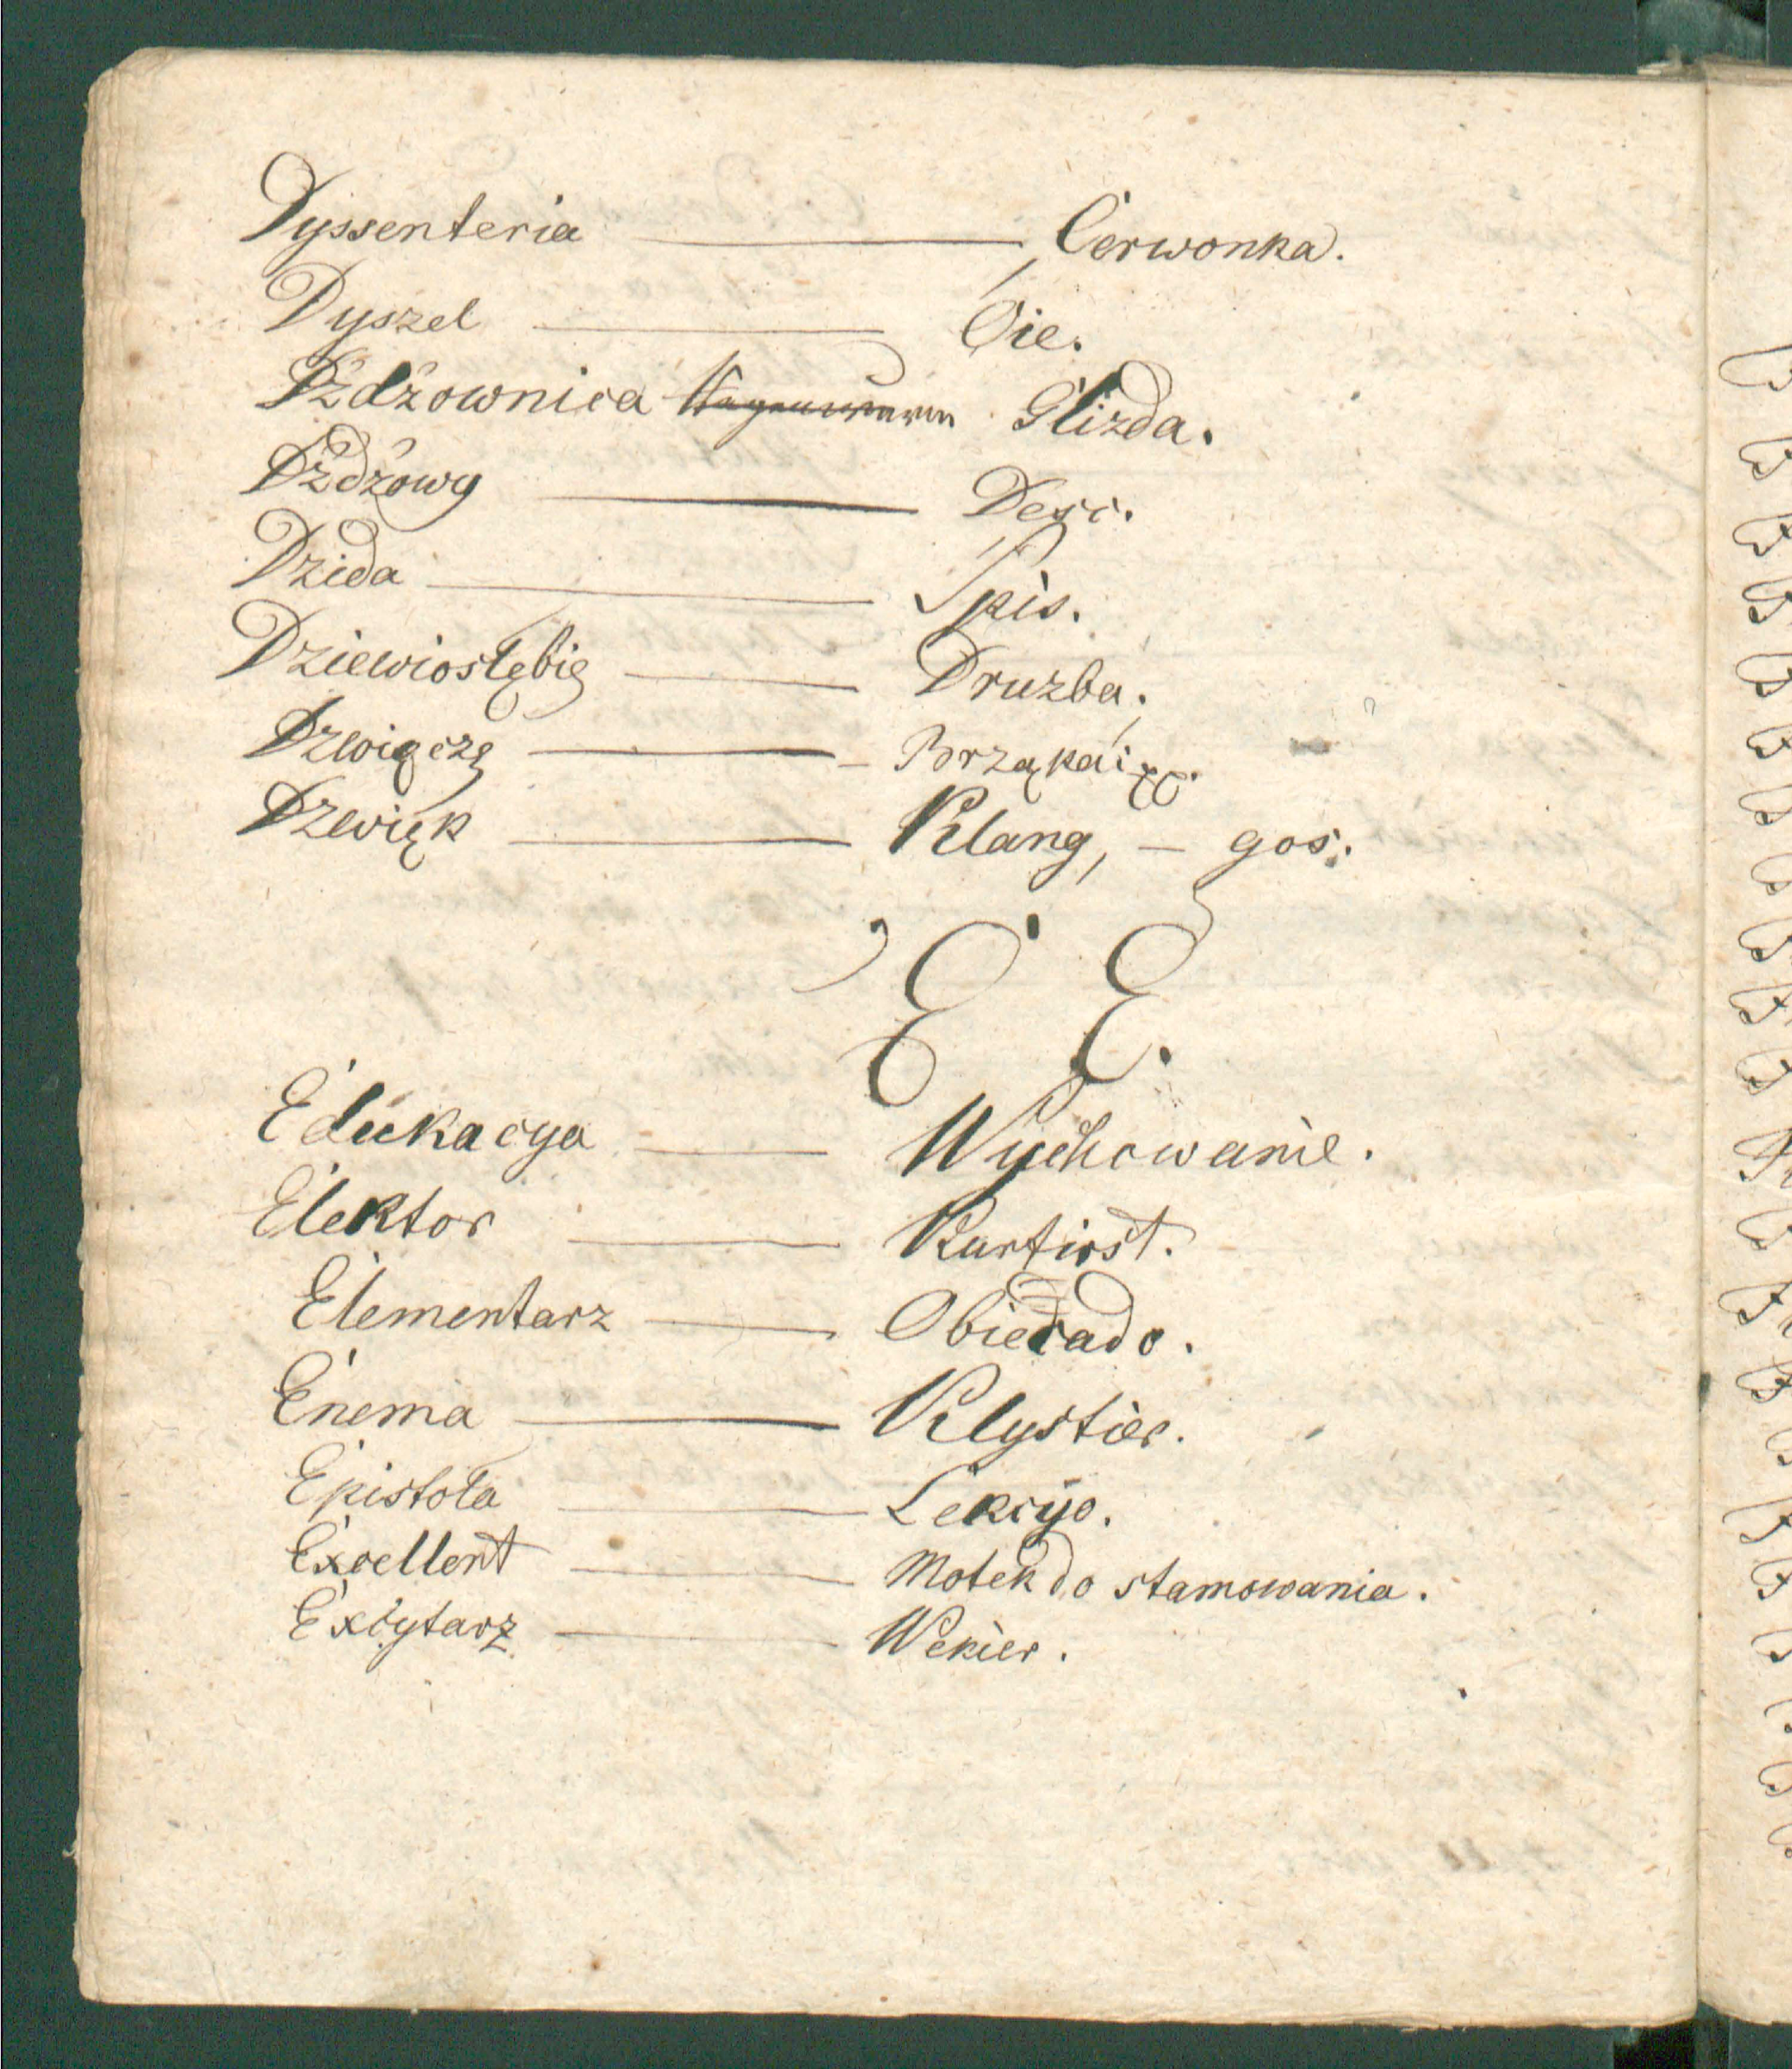 Dyssenteria — Cerwonka.
Dyszel — Oie.
Dżdżownica Glizda.
Dżdżowy — Desc.
Dzida — Spis.
Dziewiosłębię — Druzba.
Dzwięczę — Brząkaię.
Dzwięk — Klang, — gos.
E E.
Edukacya — Wychowanie.
Elektor — Kurfirst.
Elementarz — Obiecado.
Enema — Klystier.
Epistoła — Lekcyo.
Excellent — Motek do stamowania.
Excytarz — Wekier.